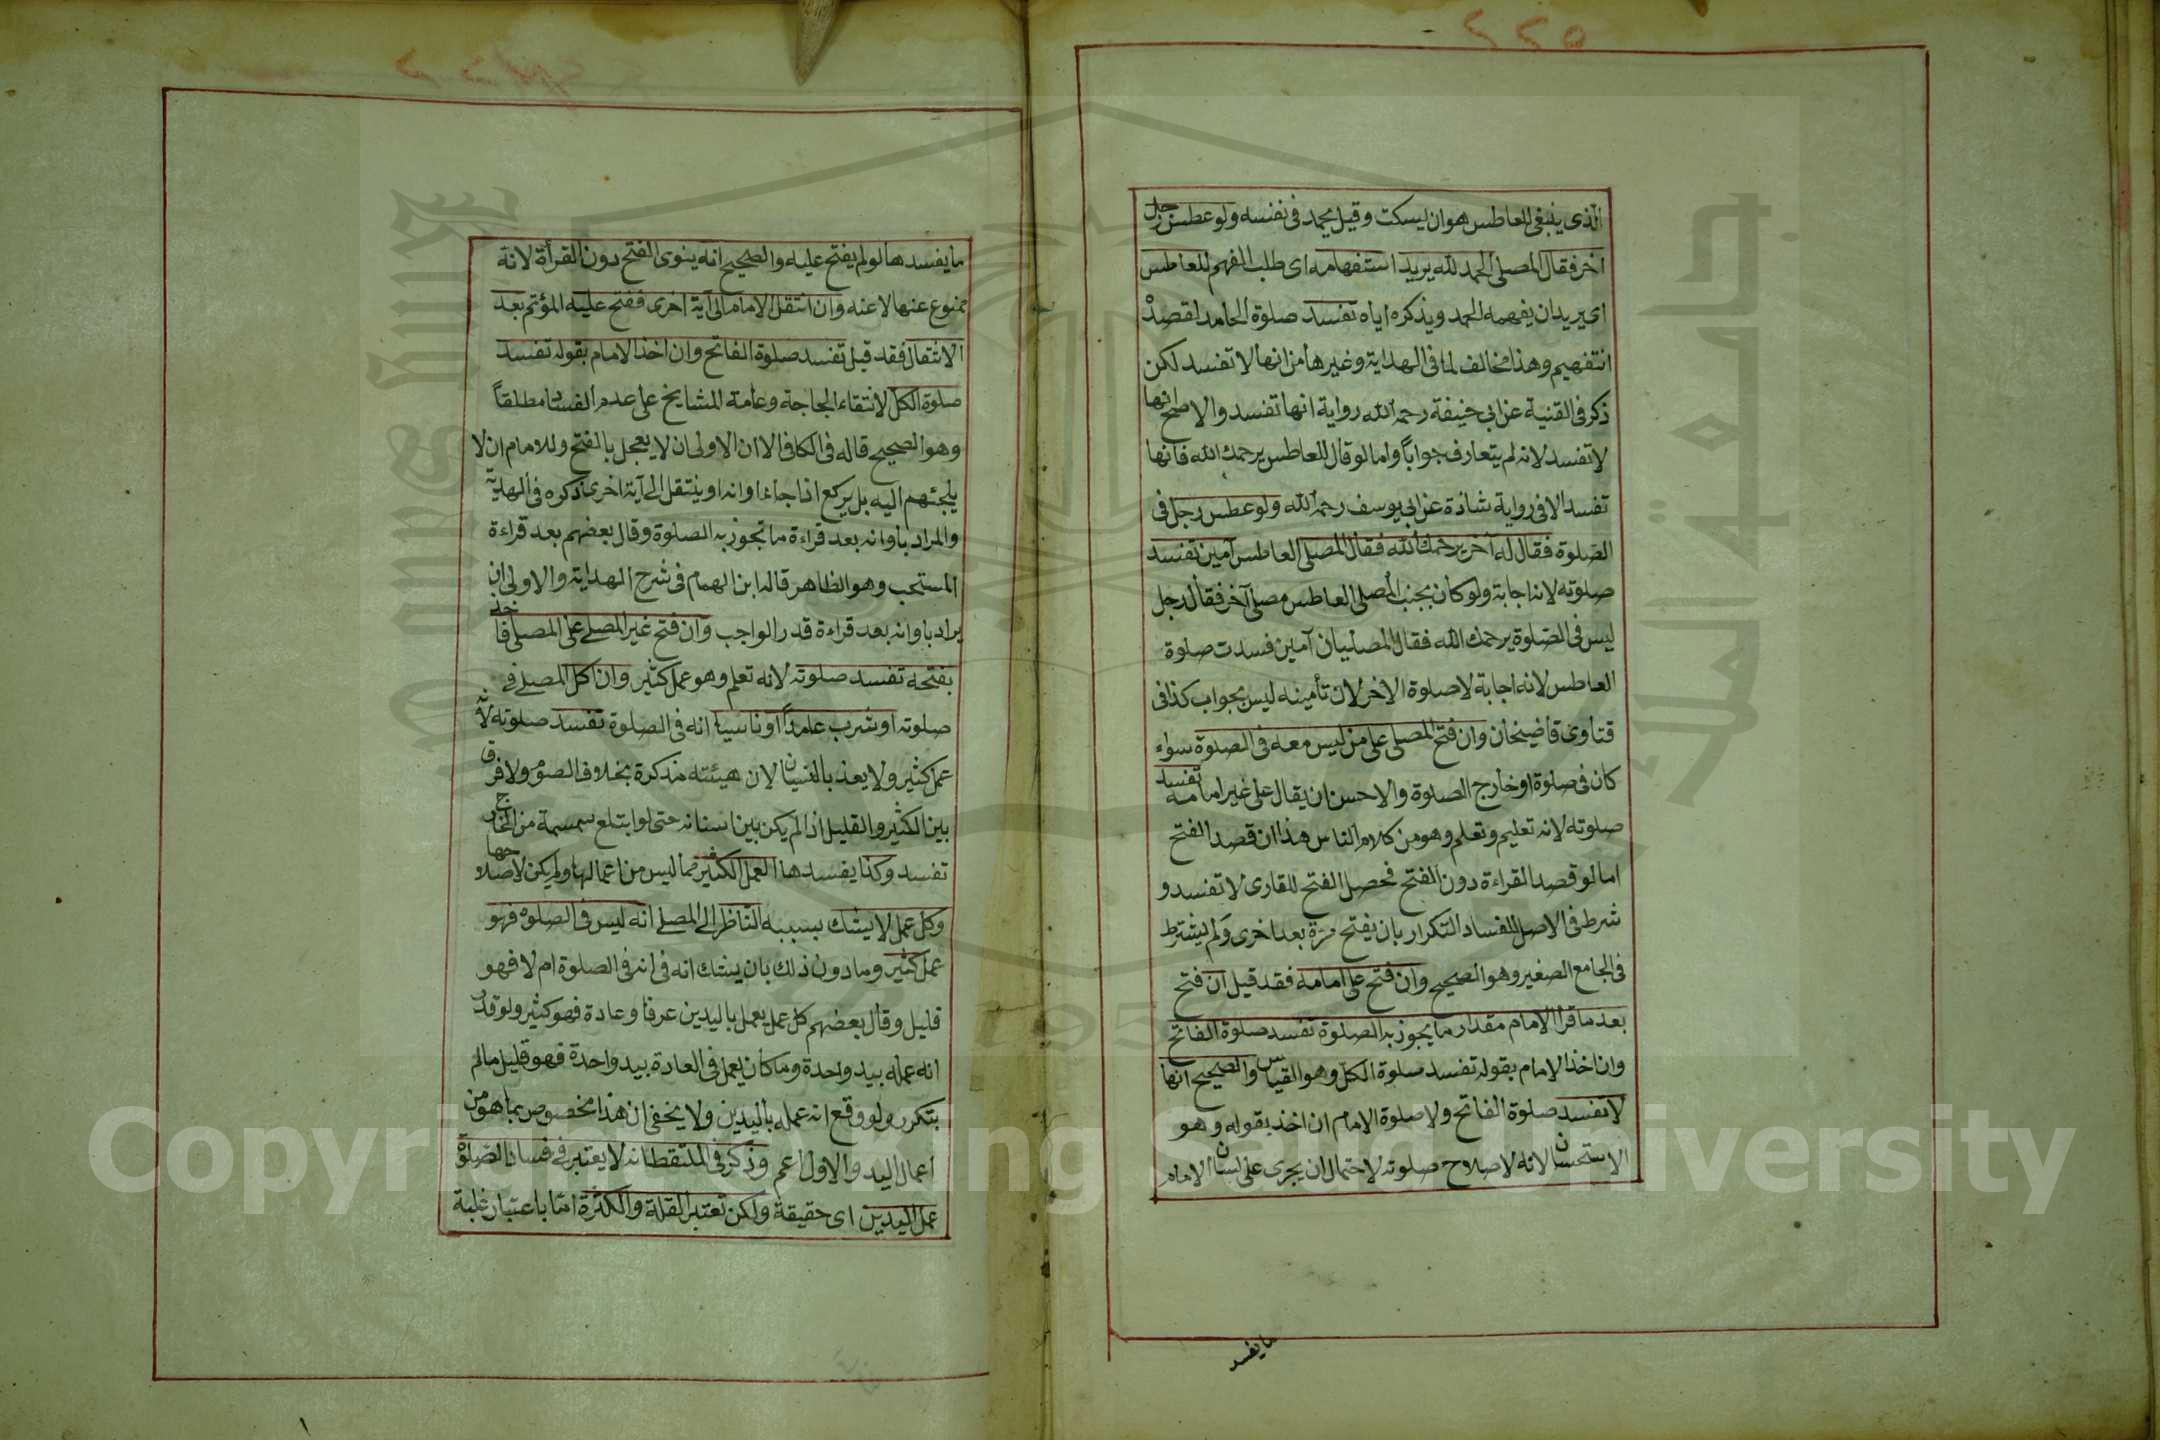 ٢٢٥
الذى ينبغى للعاطس هو ان يسكت وقيل يحمد فى نفسه ولو عطس رجل
اخر فقال المصلى الحمد لله يريد استفهامه اى طلب الفهم للعاطس
اى يريد ان يفهمه الحمد ويذكره اياه تفسد صلوة الحامد لقصده
التفهيم وهذا مخالف لما فى الهداية وغيرها من انها لا تفسد لكن
ذكر فى القنية عن ابى حنيفة رحمه الله رواية انها تفسد والاصح انها
لا تفسد لانه لم يتعارف جواباً واما لو قال للعاطس يرحمك الله فانها
تفسد الا فى رواية شاذة عن ابى يوسف رحمه الله ولو عطس رجل فى
الصلوة فقال له آخر يرحمك الله فقال المصلى العاطس آمين تفسد
صلوته لانه اجابة ولو كان بجنب المصلى العاطس مصلى آخر فقال رجل
ليس فى الصلوة يرحمك الله فقال المصليان آمين فسدت صلوة
العاطس لانه اجابة لا صلوة الاخر لان تأمينه ليس بجواب كذا فى
فتاوى قاضيخان وان فتح المصلى على من ليس معه فى الصلوة سواء
كان فى صلوة او خارج الصلوة والاحسن ان يقال على غير امامه تفسد
صلوته لانه تعليم وتعلم وهو من كلام الناس هذا ان قصد الفتح
اما لو قصد القراءة دون الفتح فحصل الفتح للقارى لا تفسد و
شرط فى الاصل للفساد التكرار بان يفتح مرة بعد اخرى ولم يشترط
فى الجامع الصغير وهو الصحيح وان فتح على امامه فقد قيل ان فتح
بعد ما قرأ الامام مقدار ما يجوز به الصلوة تفسد صلوة الفاتح
وان اخذ الامام بقوله تفسد صلوة الكل وهو القياس والصحيح انها
لا تفسد صلوة الفاتح ولا صلوة الامام ان اخذ بقوله وهو
الاستحسان لانه لاصلاح صلوته لاحتمال ان يجرى على لسان الامام
ما يفسد
ما يفسدها لو لم يفتح عليه والصحيح انه ينوى الفتح دون القرأة لانه
ممنوع عنها لا عنه وان انتقل الامام الى آية اخرى ففتح عليه المؤتم بعد
الانتقال فقد قيل تفسد صلوة الفاتح وان اخذ الامام بقوله تفسد
صلوة الكل لانتفاء الحاجة وعامة المشايخ على عدم الفساد مطلقاً
وهو الصحيح قاله فى الكافى الا ان الاولى ان لا يعجل بالفتح وللامام ان لا
يلجئهم اليه بل يركع اذا جاء اوانه او ينتقل الى آية اخرى ذكره فى الهداية
والمراد باوانه بعد قراءة ما تجوز به الصلوة وقال بعضهم بعد قراءة
المستحب وهو الظاهر قاله ابن الهمام فى شرح الهداية والاولى ان
يراد باوانه بعد قراءة قدر الواجب وان فتح غير المصلى على المصلى فاخذ
بفتحه تفسد صلوته لانه تعلم وهو عمل كثير وان اكل المصلى فى
صلوته او شرب عامداً او ناسيا انه فى الصلوة تفسد صلوته لانه
عمل كثير ولا يعذر بالنسيان لان هيئته مذكرة بخلاف الصوم ولا فرق
بين الكثير والقليل اذا لم يكن بين اسنانه حتى لو ابتلع سمسمة من الخارج
تفسد وكذا يفسدها العمل الكثير مما ليس من اعمالها ولم يكن لاصلاحها
وكل عمل لا يشك بسببه الناظر الى المصلى انه ليس فى الصلوة فهو
عمل كثير وما دون ذلك بان يشك انه فى انه فى الصلوة ام لا فهو
قليل وقال بعضهم كل عمل يعمل باليدين عرفا وعادة فهو كثير ولو قدر
انه عمله بيد واحدة وما كان يعمل فى العادة بيد واحدة فهو قليل مالم
يتكرر ولو وقع انه عمله باليدين ولا يخفى ان هذا مخصوص بما هو من
اعمال اليد والاول اعم وذكر فى الملتقط انه لا يعتبر فى فساد الصلوة
عمل اليدين اى حقيقة ولكن تعتبر القلة والكثرة اما باعتبار غلبة
Copyright © King Saud University
جامعة الملك سعود
King Saud University
1957